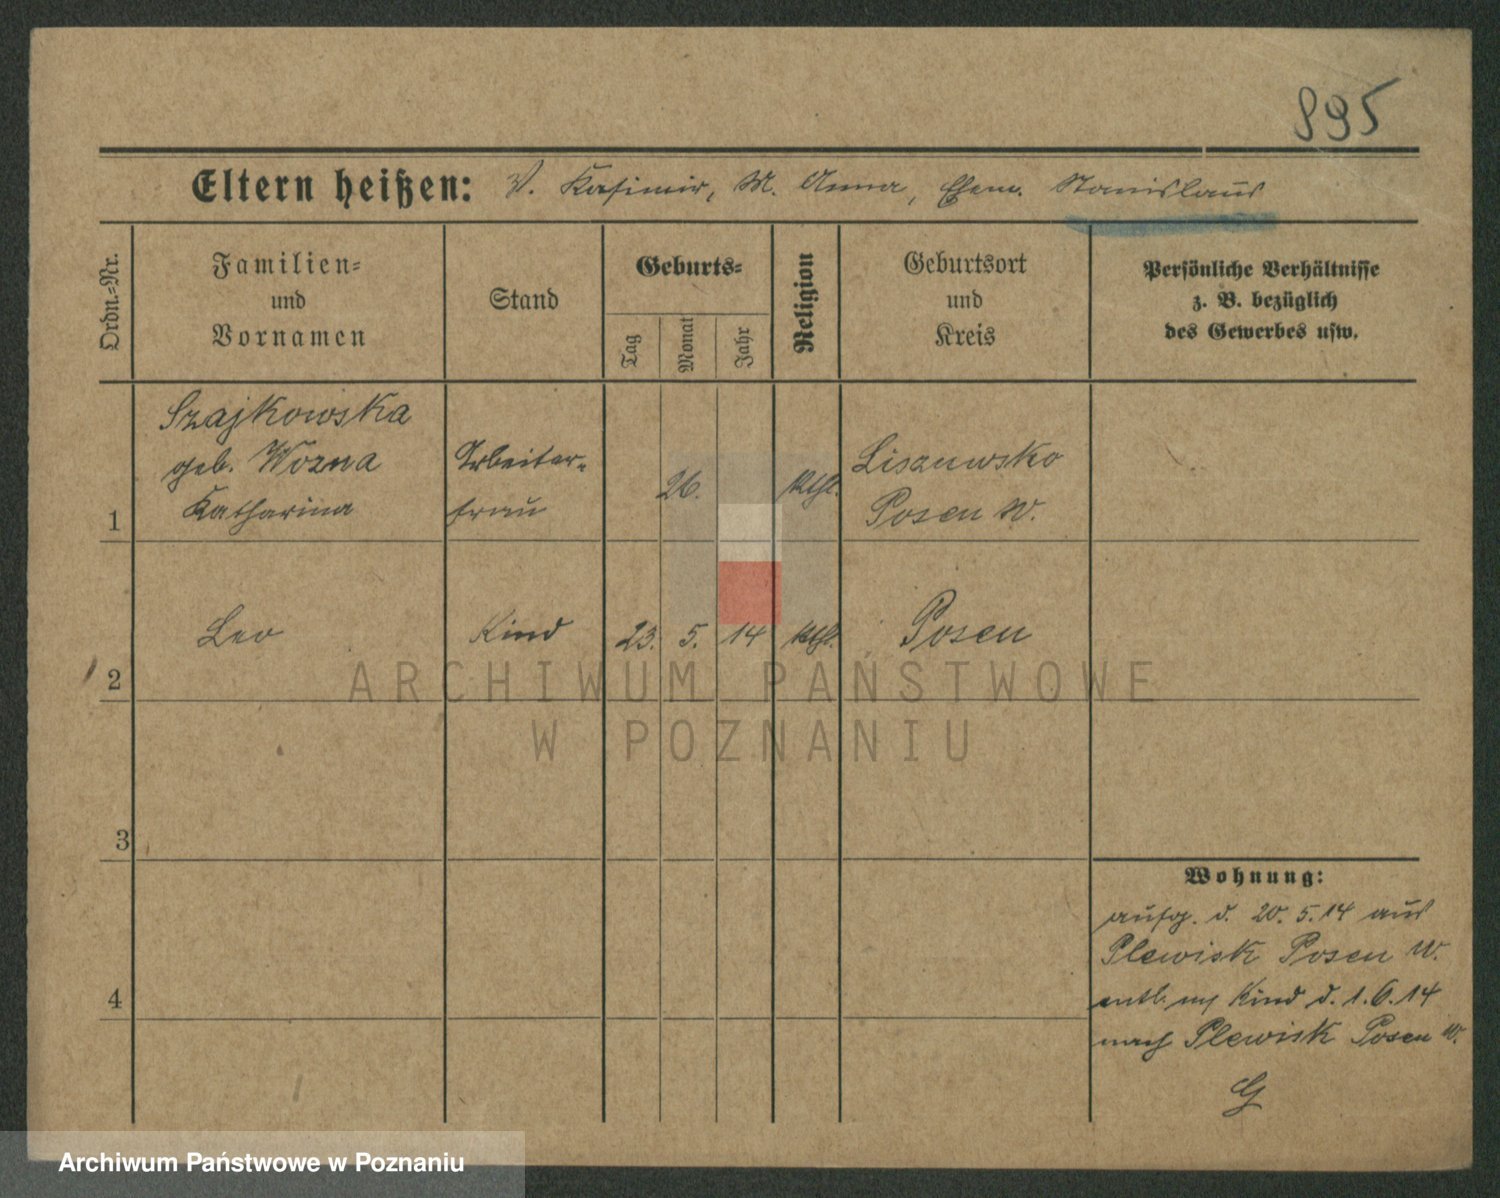 895
Eltern heißen: V. Kasimir, M. Anna, Ehem. Stanislaus
Ordn.-Nr.
Familien-
und
Vornamen
Stand
Geburts-
Tag
Monat
Jahr
Religion
Geburtsort
und
Kreis
Persönliche Verhältnisse
z. B. bezüglich
des Gewerbes usw.
1
Szajkowska
geb. Wozna
Katharina
Arbeiter-
frau
26.
kthl.
Posen W.
2
Leo
Kind
23. 5. 14
kthl.
Posen
3
4
Wohnung:
aufg. d. 20. 5. 14 aus
Plewisk Posen W.
entl. m Kind d. 1. 6. 14
nach Plewisk Posen W.
G
ARCHIWUM PAŃSTWOWE
W POZNANIU
Archiwum Państwowe w Poznaniu